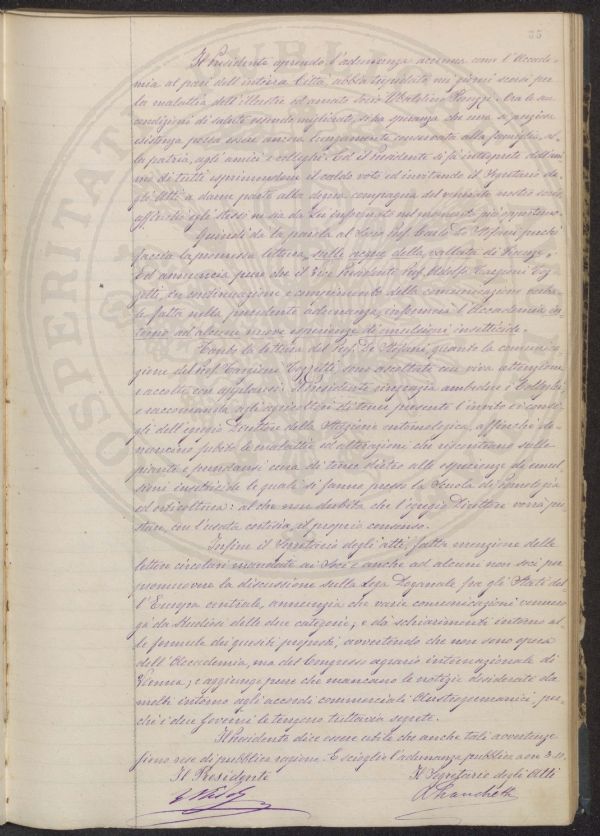 35
Il Presidente aprendo l'adunanza accenna come l'Accade-
mia al pari dell'intiera Città abbia trepidato nei giorni scorsi per
la malattia dell'illustre ed amato socio Ubaldino Peruzzi. Ora le sue
condizioni di salute essendo migliorate, si ha speranza che una sì preziosa
esistenza possa essere ancora lungamente conservata alla famiglia, al-
la patria, agli amici e colleghi. Ed il Presidente si fa interprete dell'ani-
mo di tutti esprimendone il caldo voto ed invitando il Segretario de-
gli Atti a darne parte alla degna compagna del venerato nostro socio
affinchè egli stesso ne sia da Lei informato nel momento più opportuno.
Quindi dà la parola al Socio Prof. Carlo De Stefani perchè
faccia la promessa lettura, sulle acque della vallata di Firenze.
Ed annuncia pure che il Vice Presidente Prof. Adolfo Targioni Toz-
zetti, in continuazione e compimento della comunicazione verba-
le fatta nella precedente adunanza, informerà l'Accademia in-
torno ad alcune nuove esperienze di emulsioni insetticide.
Tanto la lettura del Prof. De Stefani, quanto la comunica-
zione del Prof. Targioni Tozzetti sono ascoltate con viva attenzione
e accolte con applausi. Il Presidente ringrazia ambedue i Colleghi
e raccomanda agli agricoltori di tener presente l'invito e i consi-
gli dell'egregio Direttore della Stazione entomologica, affinchè de-
nuncino subito le malattie ed alterazioni che riscontrano sulle
piante e prendansi cura di tener dietro alle esperienze di emul-
sioni insetticide le quali si fanno presso la Scuola di Pomologia
ed orticoltura: al che non dubita che l'egregio Direttore vorrà pre-
stare, con l'usata cortesia il proprio consenso.
Infine il Segretario degli atti, fatta menzione delle
lettere circolari mandate ai Soci e anche ad alcuni non soci per
promuovere la discussione sulla Lega Doganale fra gli Stati del-
l'Europa centrale, annunzia che varie comunicazioni vennero
già da studiosi delle due categorie; e dà schiarimenti intorno al-
le formule dei quesiti proposti, avvertendo che non sono opera
dell'Accademia, ma del Congresso agrario internazionale di
Vienna; e aggiunge pure che mancano le notizie desiderate da
molti intorno agli accordi commerciali Austrogermanici, per-
chè i due Governi le tengono tuttavia segrete.
Il Presidente dice essere utile che anche tali avvertenze
siano rese di pubblica ragione. E scioglie l'adunanza pubblica a ore 3.10.
Il Presidente Il Segretario degli Atti